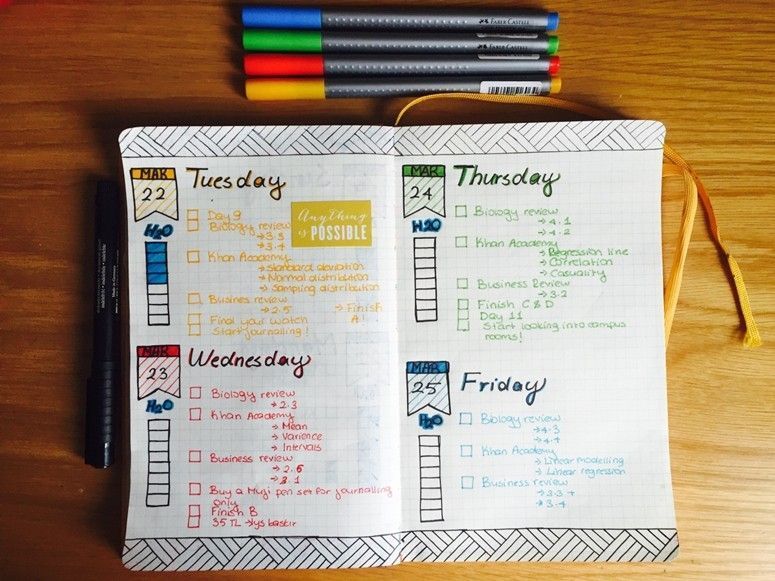 FABER CASTELL
FABER CASTELL
MAR
22
Tuesday
H2O
Day 9
Biology review
→3.3
→3.4
Khan Academy
→Standard deviation
→Normal distribution
→Sampling distribution
Business review
→2.5
→ Finish
A!
Find your watch
Start journalling!
Anything
is POSSIBLE
MAR
23
Wednesday
H2O
Biology review
→2.3
Khan Academy
→ Mean
→ Varience
→ Intervals
Business review
→2.6
→3.1
Buy a Muji pen set for journalling
only
Finish B
35 TL →lys bastır
MAR
24
Thursday
H2O
Biology review
→4.1
→4.2
Khan Academy
→Regression line
→Correlation
→Casuality
Business Review
→3.2
Finish C & D
Day 11
Start looking into campus
rooms!
MAR
25
Friday
H2O
Biology review
→4.3
→4.4
Khan Academy
→ Linear modelling
→ Linear regression
Business review
→3.3 +
→3.4